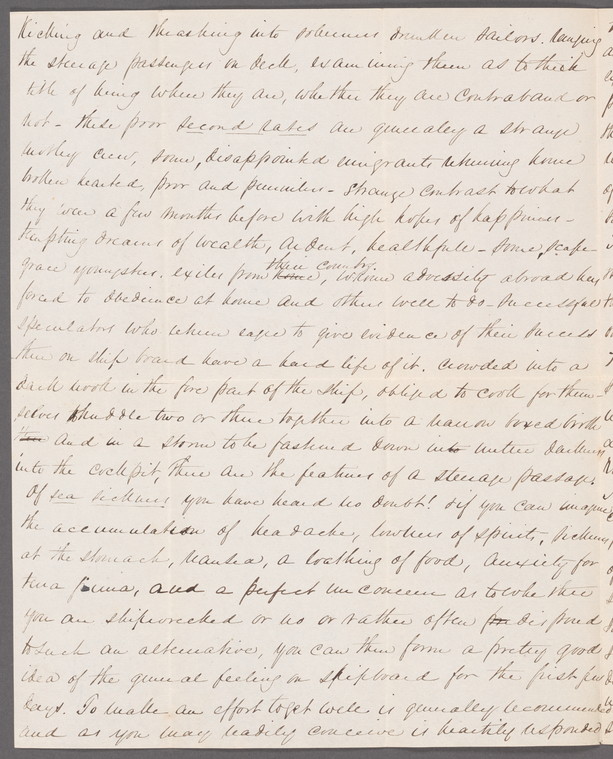 Kicking and thrashing into soberness drunken sailors. Ranging
the steerage passengers on deck, examining them as to their
title of being where they are, whether they are contraband or
not - these poor second rates are generaley a strange
motley crew, some, disappointed emigrants returning home
broken hearted, poor and penniless - Strange contrast to what
they were a few months before with high hopes of happiness -
tempting dreams of wealth, ardent, healthfule - Some, scape
grace youngsters. exiles from home their country, whome adversity abroad has
forced to obedience at home and others well to do successful
speculators who return eager to give evidence of their success
these on ship board have a hard life of it. Crowded into a
dark nook in the fore part of the ship, obliged to cook for them-
selves huddle two or three together into a narrow boxed birth
and in a storm to be fastened down into utter darkness
into the cockpit, these are the features of a steerage passage.
Of sea sickness you have heard no doubt! & if you can imagine
the accumulation of headache, lowness of spirits, sickness
at the stomach, nausea, a loathing of food, anxiety for
terra firma, and a perfect unconcern as to whether
you are shipwrecked or no or rather often disposed
to such an alternative, you can then form a pretty good
idea of the general feeling on shipboard for the first few
days. To make an effort to get well is generally recommended
and as you may readily conceive is heartily responded